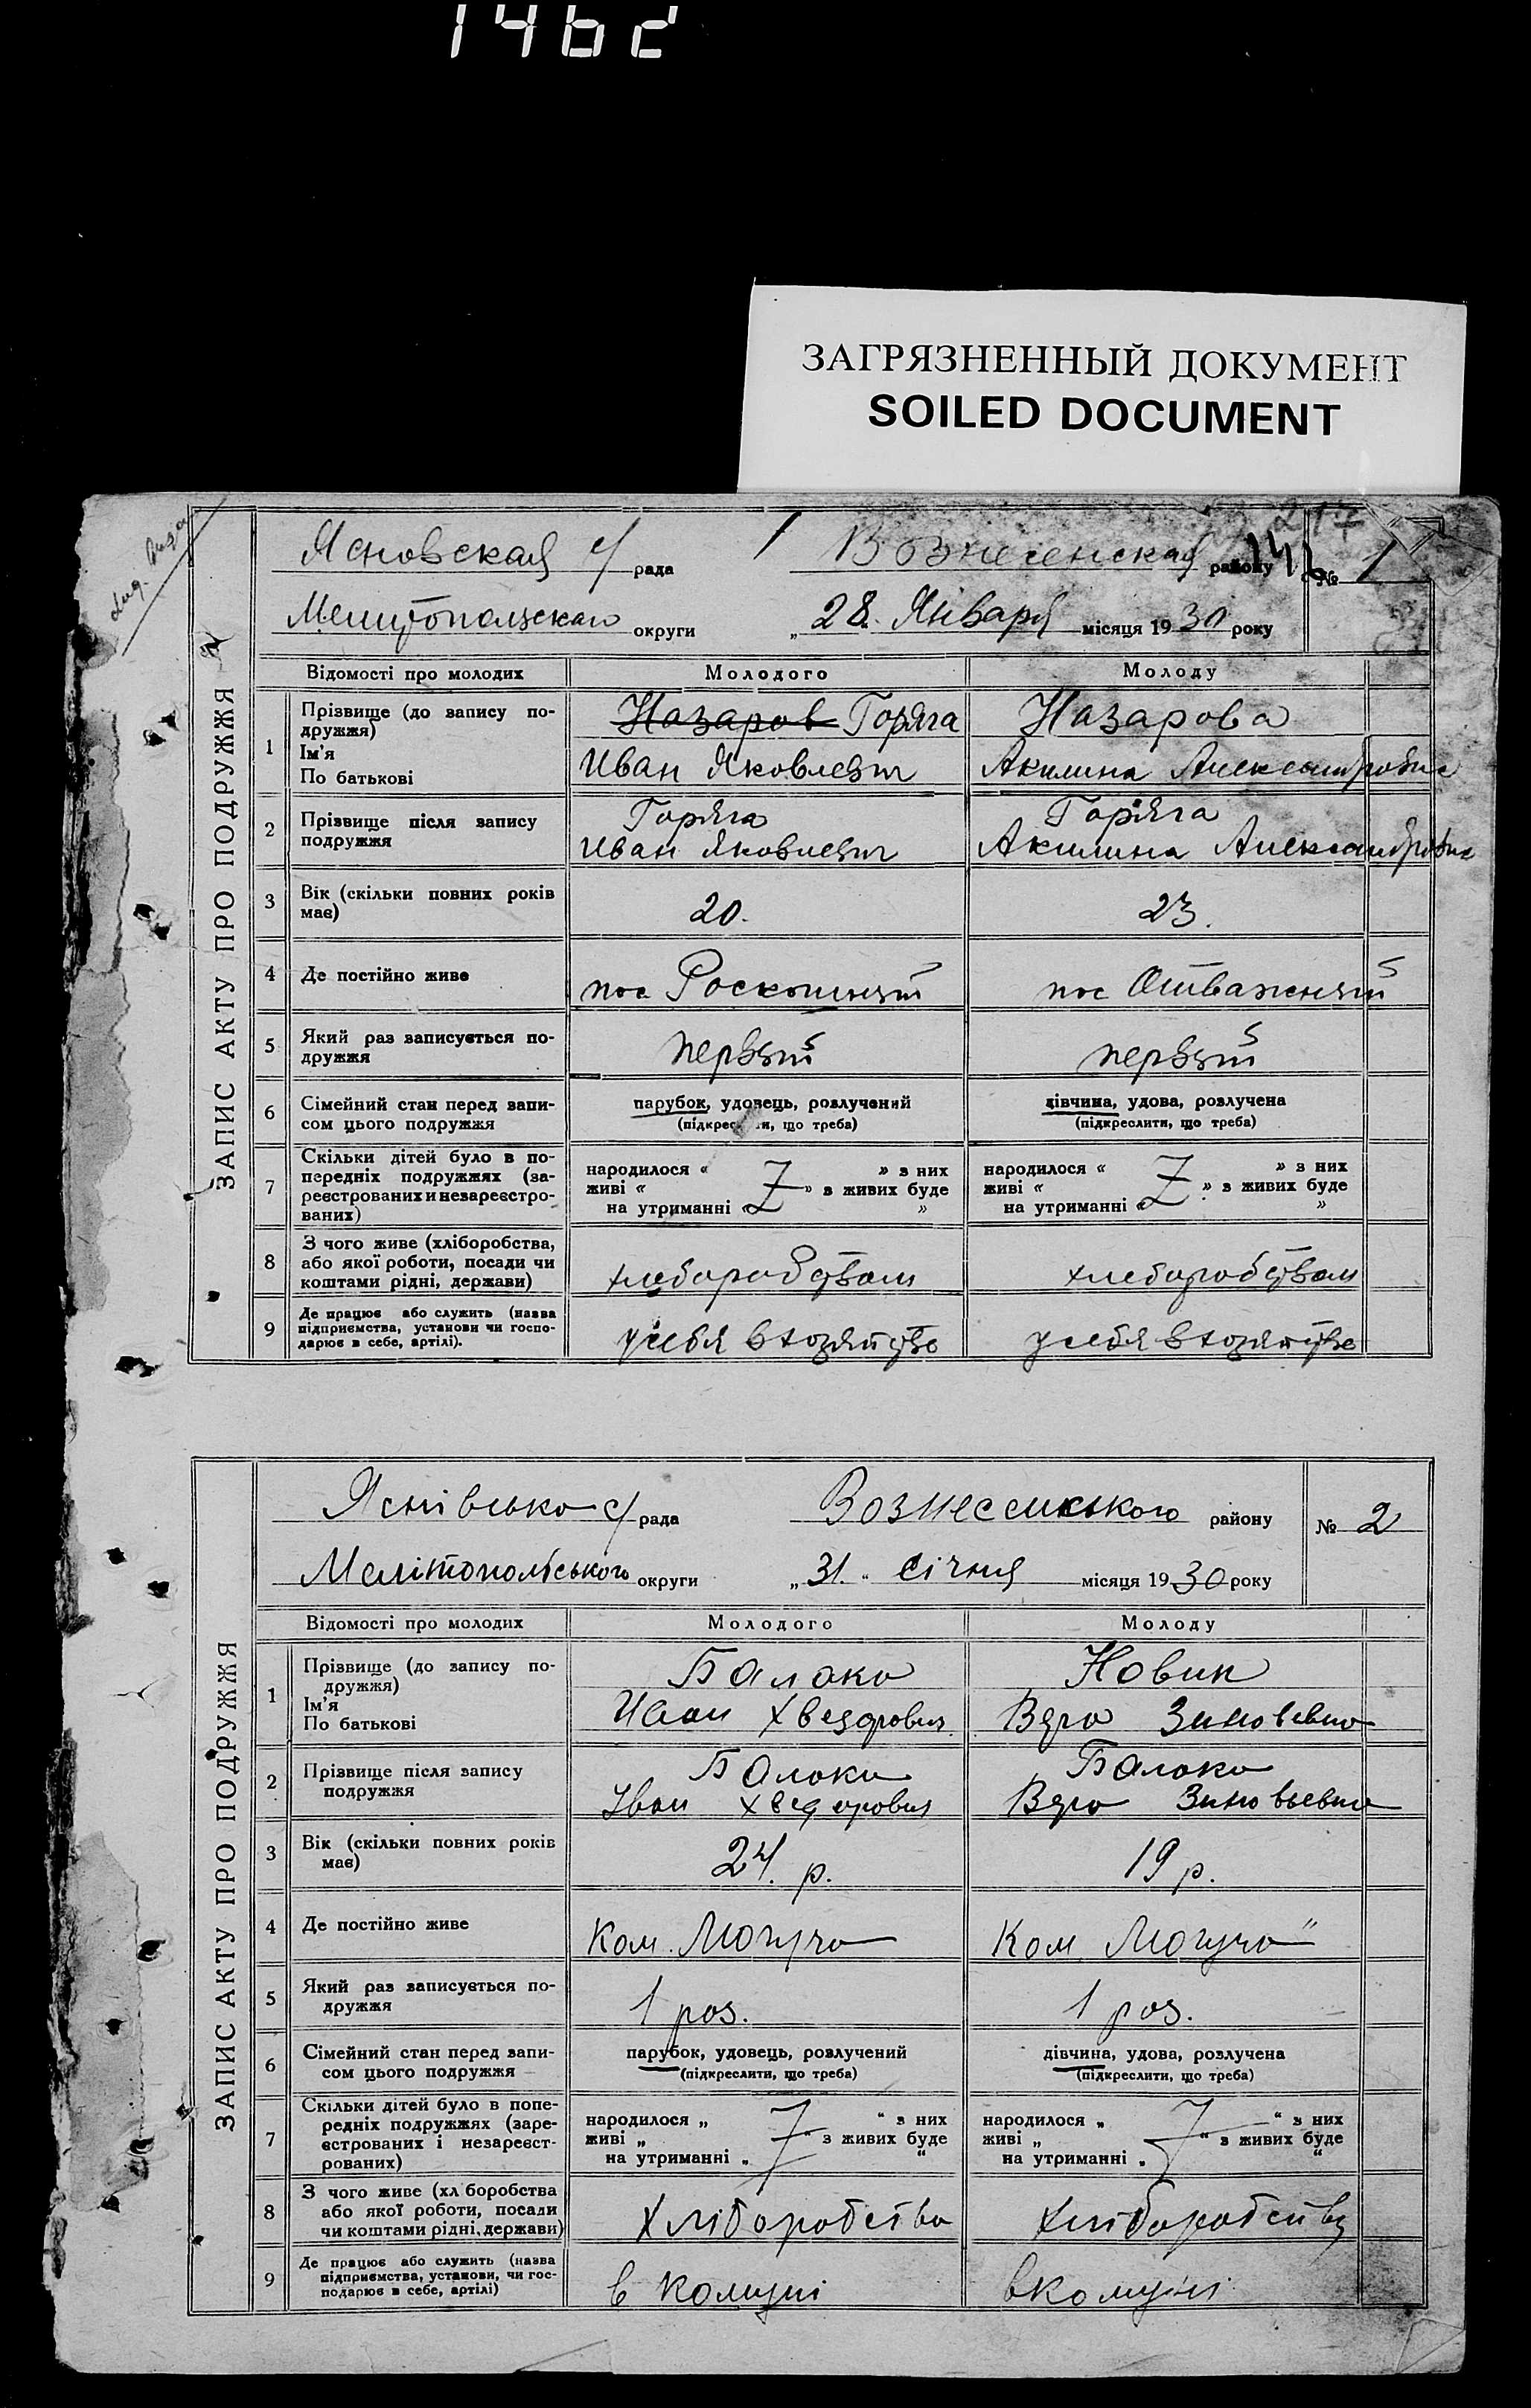 1462
ЗАГРЯЗНЕННЫЙ ДОКУМЕНТ
SOILED DOCUMENT
217
ЗАПИС АКТУ ПРО ПОДРУЖЖЯ
Ясновская с/ рада 1 Вознесенская району 141 № 1
Мелитопольского округи „28“ Января місяця 1930 року
Відомості про молодих Молодого Молоду
1 Прізвище (до запису по-
дружжя)
Ім'я
По батькові
Назаров Горяга
Иван Яковлевич
Назарова
Акилина Александровна
2 Прізвище після запису
подружжя
Горяга
Иван Яковлевич
Горяга
Акилина Александровна
3 Вік (скільки повних років
має)
20.
23.
4 Де постійно живе
пос Роскошный
пос Отважный
5 Який раз записується по-
дружжя
первый
первый
6 Сімейний стан перед запи-
сом цього подружжя
парубок, удовець, розлучений
(підкреслити, що треба)
дівчина, удова, розлучена
(підкреслити, що треба)
7 Скільки дітей було в по-
передніх подружжях (за-
реєстрованих и незареєстро-
ваних)
народилося « » з них
живі « » з живих буде
на утриманні « »
народилося « » з них
живі « » з живих буде
на утриманні « »
8 З чого живе (хліборобства,
або якої роботи, посади чи
коштами рідні, держави)
хлеборобством
хлеборобством
9 Де працює або служить (назва
підприємства, установи чи госпо-
дарює в себе, артілі).
у себя в хозяйстве
у себя в хозяйстве
ЗАПИС АКТУ ПРО ПОДРУЖЖЯ
Яснівсько с/ рада Вознесенського району № 2
Мелітопольського округи „31.“ Січня місяця 1930 року
Відомості про молодих Молодого Молоду
1 Прізвище (до запису по-
дружжя)
Ім'я
По батькові
Балака
Иван Хведорович
Новик
Вера Зиновевна
2 Прізвище після запису
подружжя
Балака
Іван Хведорович
Балака
Вера Зиновьевна
3 Вік (скільки повних років
має)
24. р.
19 р.
4 Де постійно живе
Ком. Могуча
Ком Могуча"
5 Який раз записується по-
дружжя
1 раз.
1 раз.
6 Сімейний стан перед запи-
сом цього подружжя
парубок, удовець, розлучений
(підкреслити, що треба)
дівчина, удова, розлучена
(підкреслити, що треба)
7 Скільки дітей було в попе-
редніх подружжях (заре-
єстрованих і незареєст-
рованих)
народилося „ “ з них
живі „ “ з живих буде
на утриманні „ “
народилося „ “ з них
живі „ “ з живих буде
на утриманні „ “
8 З чого живе (хл боробства
або якої роботи, посади
чи коштами рідні, держави)
Хліборобства
хліборобству
9 Де працює або служить (назва
підприємства, установи, чи гос-
подарює в себе, артілі)
в комуні
в комуні